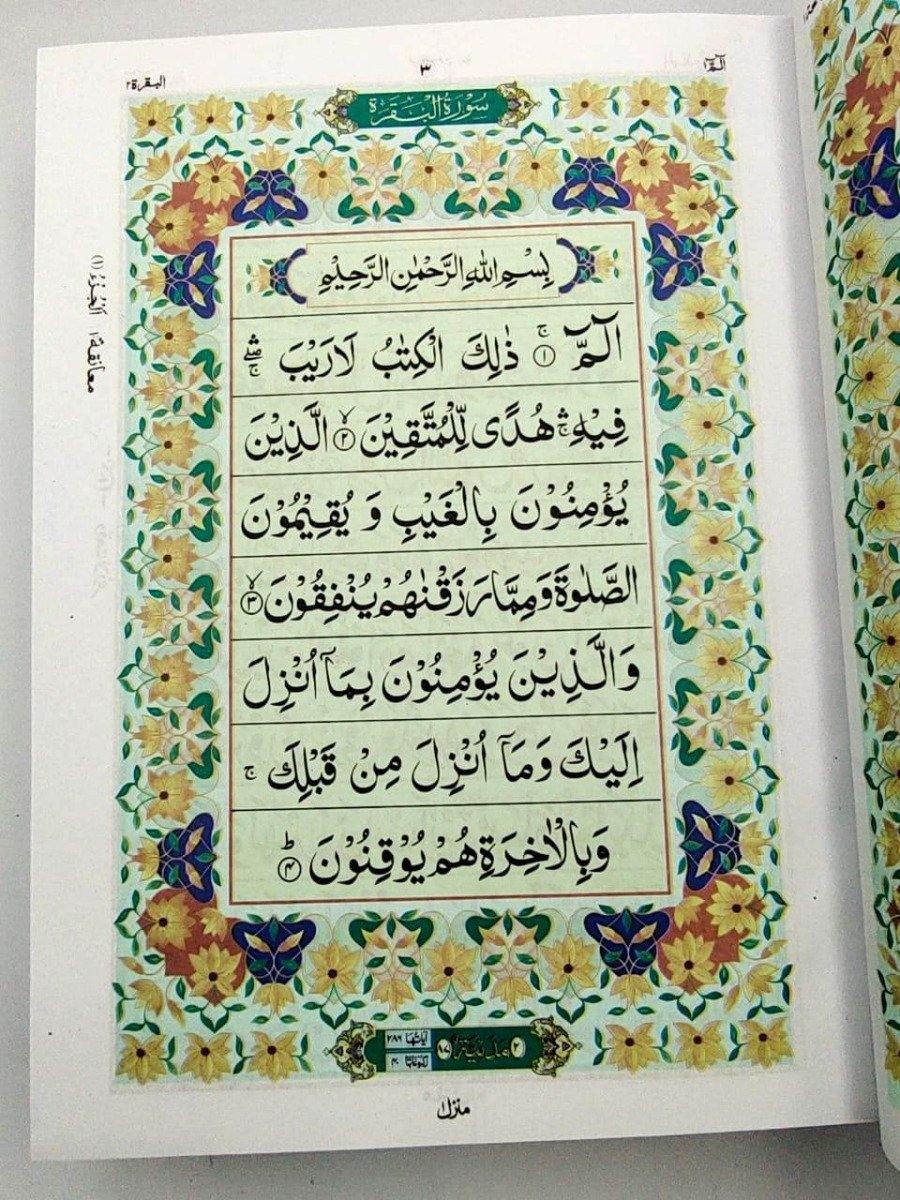 الٓمّٓ ١
٣
البقرة ٢
سُوْرَةُ الْبَقَرَةِ
بِسْمِ اللهِ الرَّحْمٰنِ الرَّحِيْمِ
الٓمّٓ ۚ ﴿۱﴾ ذٰلِكَ الْكِتٰبُ لَا رَيْبَ ۛۖۚ
فِيْهِ ۛۚ هُدًى لِّلْمُتَّقِيْنَ ﴿۲﴾ۙ الَّذِيْنَ
يُؤْمِنُوْنَ بِالْغَيْبِ وَ يُقِيْمُوْنَ
الصَّلٰوةَ وَمِمَّا رَزَقْنٰهُمْ يُنْفِقُوْنَ ﴿۳﴾ۙ
وَالَّذِيْنَ يُؤْمِنُوْنَ بِمَآ اُنْزِلَ
اِلَيْكَ وَمَآ اُنْزِلَ مِنْ قَبْلِكَ ۚ
وَبِالْاٰخِرَةِ هُمْ يُوْقِنُوْنَ ﴿۴﴾ؕ
اَلْجُزْءُ (١)
معانقة ١
٢ مدنية ٨٧
اٰياتها ٢٨٦
ركوعاتها ٤٠
منزل ١